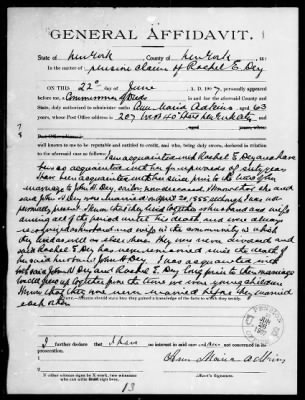 GENERAL AFFIDAVIT.
State of New York, County of New York, ss:
In the matter of pension claim of Rachel E. Dey
ON THIS 22d day of June A. D. 1907, personally appeared
before me, a Commissioner of Deeds in and for the aforesaid County and
State, duly authorized to administer oaths Ann Maria Adkins, aged 63
years, whose Post Office address is 207 West 40th Street New York City
well known to me to be reputable and entitled to credit, and who, being duly sworn, declared in relation
to the aforesaid case as follows:
I am acquainted with Rachel E. Dey and have
been so acquainted with her for upwards of sixty years
I have been acquainted with her since prior to the time of her
marriage to John H. Dey, earlier, now deceased. I know that she and
said John H. Dey was married on April 20 1855, although I was not
personally present. I know that they lived together as husband and wife
during all of the period until his death and were always
recognized as husband and wife in the community in which
they resided as else where. They were never divorced and
said Rachel E. Dey has never remarried since the death of
her said husband John H. Dey. I was acquainted with
both said John H. Dey and Rachel E. Dey long prior to their marriage
we all grew up together from the time we were young children
I know that they were never married before they married
each other
I further declare that I have no interest in said case and am not concerned in its
prosecution.
Ann Maria Adkins
Affiant's Signature.
If either witness signs by X mark, two witnesses
who can write sign here.
13